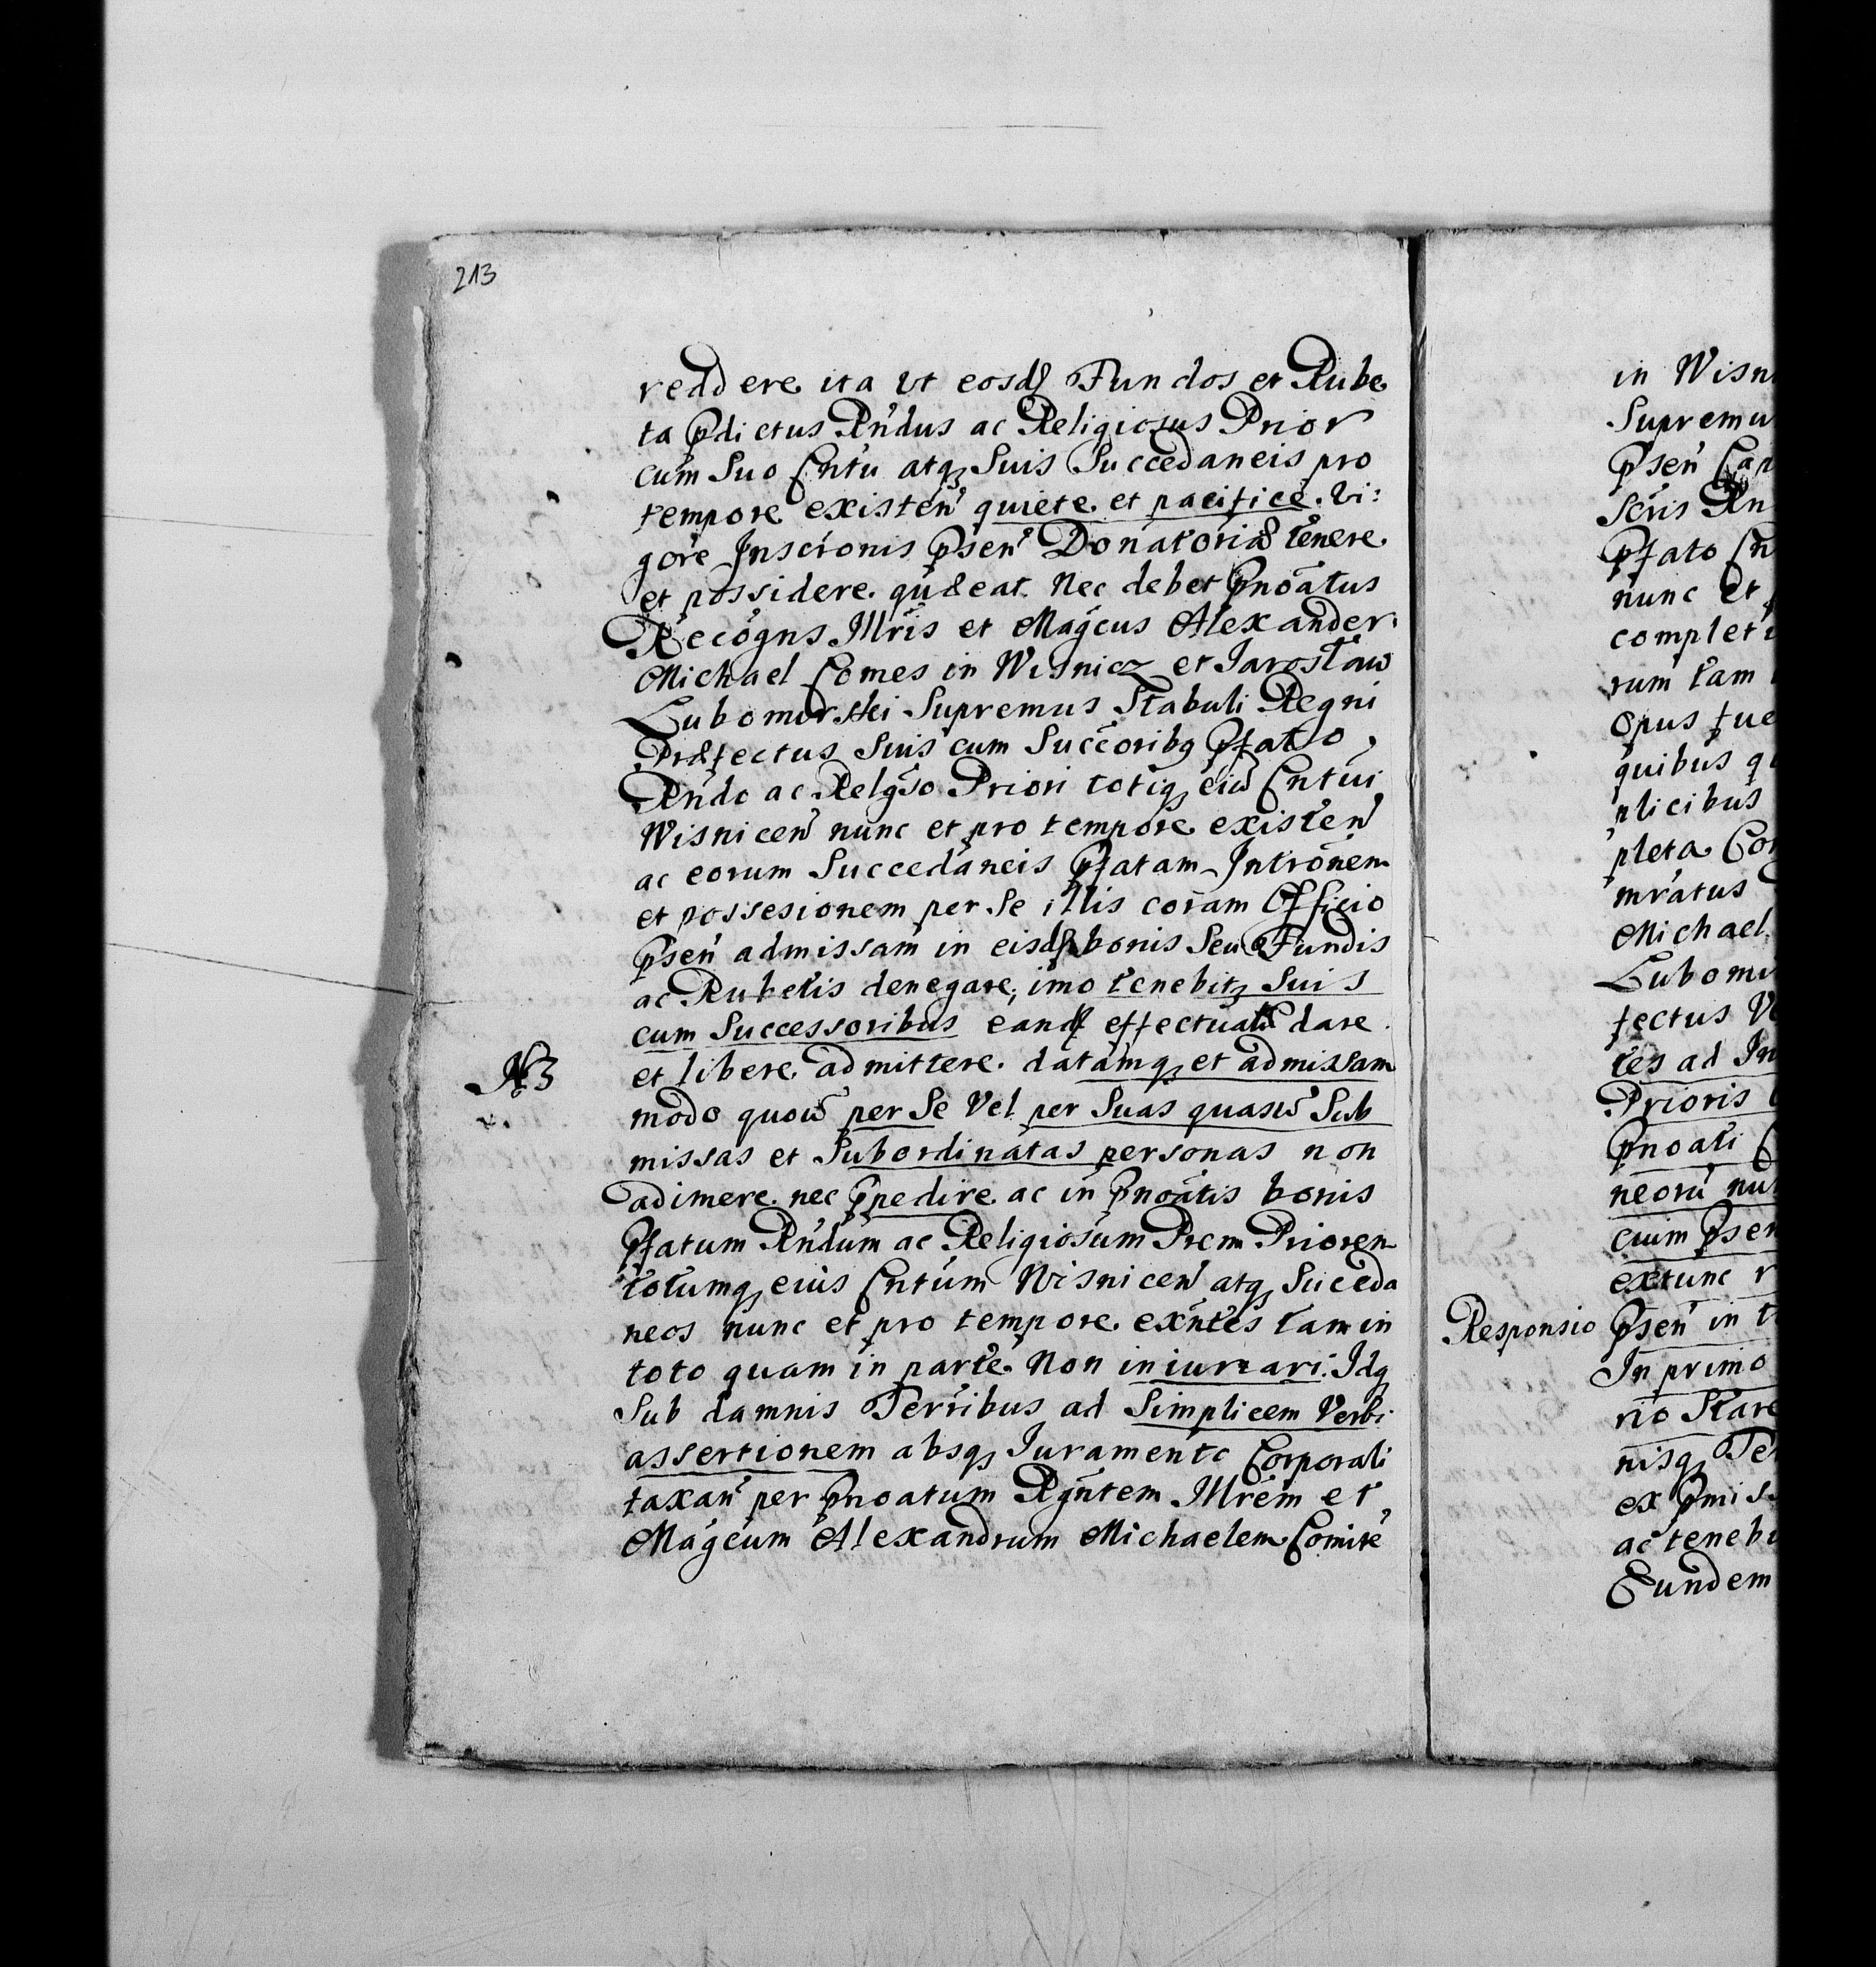 213
reddere ita vt eosdꝫ Fundos et Rube
ta Pdictus Rndus ac Religiosus Prior
cum Suo Cntu atqꝫ Suis Succedaneis pro
tempore existen quiete et pacifice. Vi:
gore Inscionis Psen Donatoriæ tenere
et possidere quæat. Nec debet Pnoatus
Recogns Illris et Magcus Alexander
Michael Comes in Wisnicz et Jarosław
Lubomirski Supremus Stabuli Regni
Præfectus Suis cum Succoribꝫ Pfato,
Rndo ac Relgso Priori totiqꝫ eius Cntui
Wisnicen nunc et pro tempore existen
ac eorum Succedaneis Pfatam Intronem
et possesionem per Se illis coram Officio
Psen admissam in eisdꝫ bonis Seu Fundis
ac Rubetis denegare, imo tenebitꝫ Suis
cum Successoribus eandꝫ effectuatr dare
et libere admittere. datamqꝫ et admissam
NB
modo quovis per Se Vel per Suas quasvis Sub
missas et Subordinatas personas non
adimere nec Ppedire ac in Pnoatis bonis
Pfatum Rndum ac Religiosum Prem Priorem
totumqꝫ eius Cntum Wisnicen atqꝫ Succeda
neos nunc et pro tempore exntes tam in
toto quam in parte Non iniuriari. Idqꝫ
Sub damnis Terribus ad Simplicem Verbi
assertionem absqꝫ Juramento Corporali
taxan per Pnoatum Rgntem Illrem et
Magcum Alexandrum Michaelem Comite
in Wisn
Supremu
Psen Cap
Scris Rn
Pfato Cn
nunc Et
complet
rum tam
opus fue
quibus q
plicibus
pleta Con
mratus
Michael
Lubomi
fectus V
tes ad In
Prioris
Pnoati C
neoru nu
cuim Psen
extunc r
Responsio Psen in t
In primo
rio Stare
nisqꝫ Te
ex Pmis
ac tenebi
Eundem